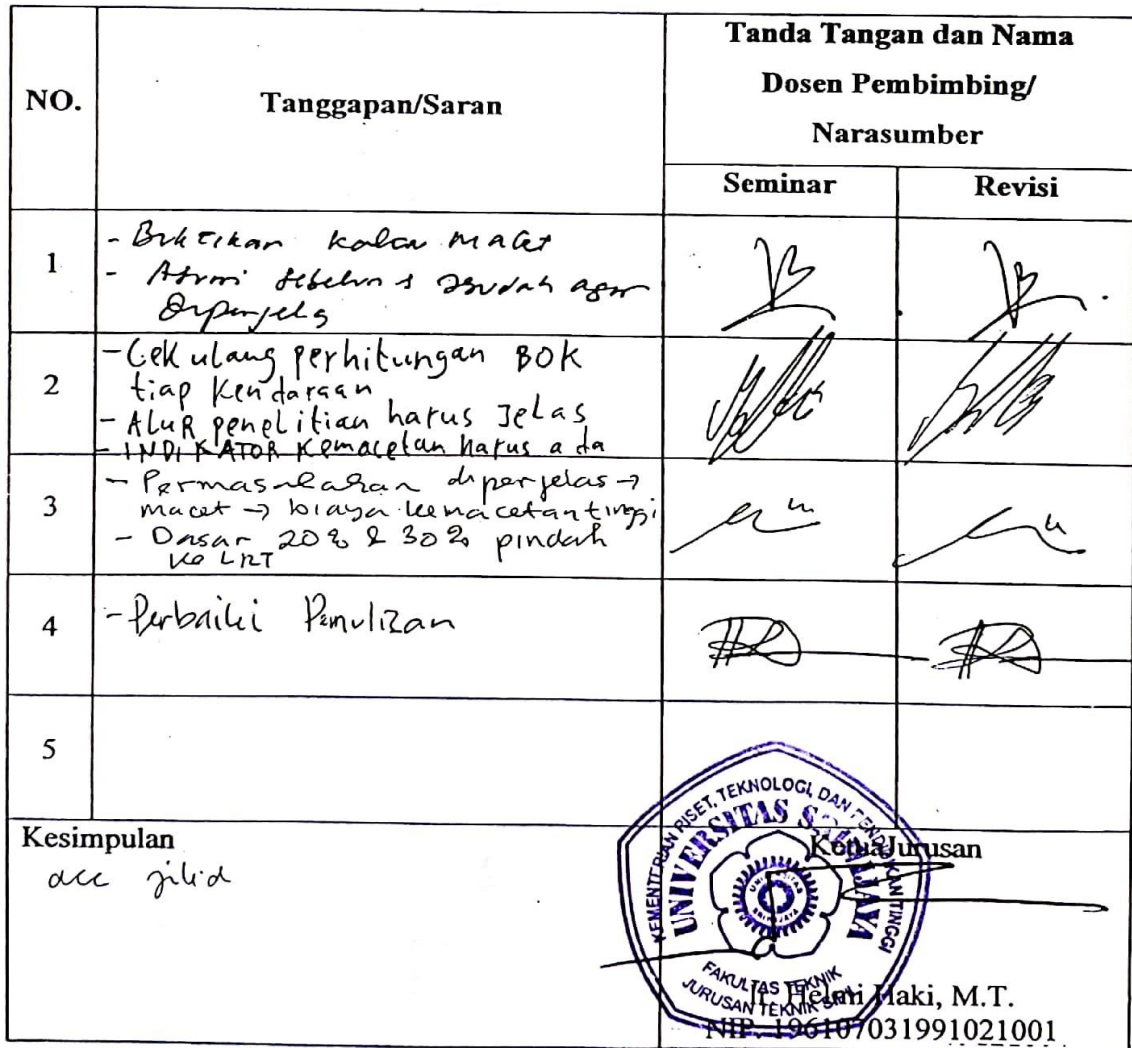 NO.
Tanggapan/Saran
Tanda Tangan dan Nama
Dosen Pembimbing/
Narasumber
Seminar
Revisi
1
- Buktikan kalau macet
- Asumsi sebelum & sesudah agar
diperjelas
2
- Cek ulang perhitungan BOK
tiap kendaraan
- ALUR penelitian harus Jelas
- INDIKATOR Kemacetan harus ada
3
- Permasalahan diperjelas →
macet → biaya kemacetan tinggi
- Dasar 20% & 30% pindah
ke LRT
4
- Perbaiki Penulisan
5
Kesimpulan
acc jilid
KEMENTERIAN RISET, TEKNOLOGI, DAN PENDIDIKAN TINGGI
UNIVERSITAS SRIWIJAYA
UNIVERSITAS
SRIWIJAYA
FAKULTAS TEKNIK
JURUSAN TEKNIK SIPIL
Ketua Jurusan
Ir. Helmi Haki, M.T.
NIP. 196107031991021001